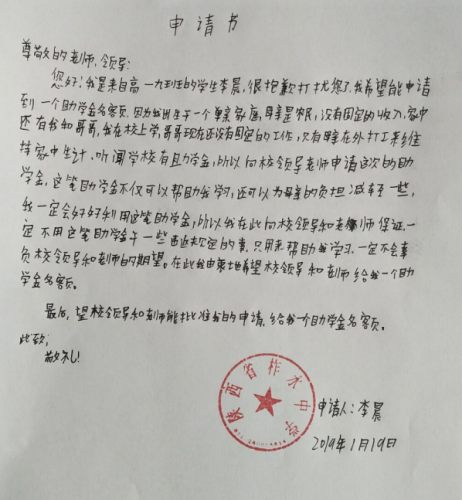 申请书
尊敬的老师、领导:
您好!我是来自高一九班的学生李晨,很抱歉打扰您了,我希望能申请
到一个助学金名额,因为我出生于一个单亲家庭,母亲是农民,没有固定的收入,家中
还有我和哥哥,我在校上学,哥哥现在还没有固定的工作,只有母亲在外打工来维
持家中生计,听闻学校有助学金,所以向校领导老师申请这次的助
学金,这笔助学金不仅可以帮助我学习,还可以为母亲的负担减轻一些,
我一定会好好利用这笔助学金,所以我在此向校领导和老师保证,一
定不用这笔助学金干一些违返规定的事,只用来帮助我学习,一定不会辜
负校领导和老师的期望。在此我由衷地希望校领导和老师给我一个助
学金名额。
最后,望校领导和老师能批准我的申请,给我一个助学金名额。
此致,
敬礼!
陕西省柞水中学
申请人:李晨
2019年1月19日